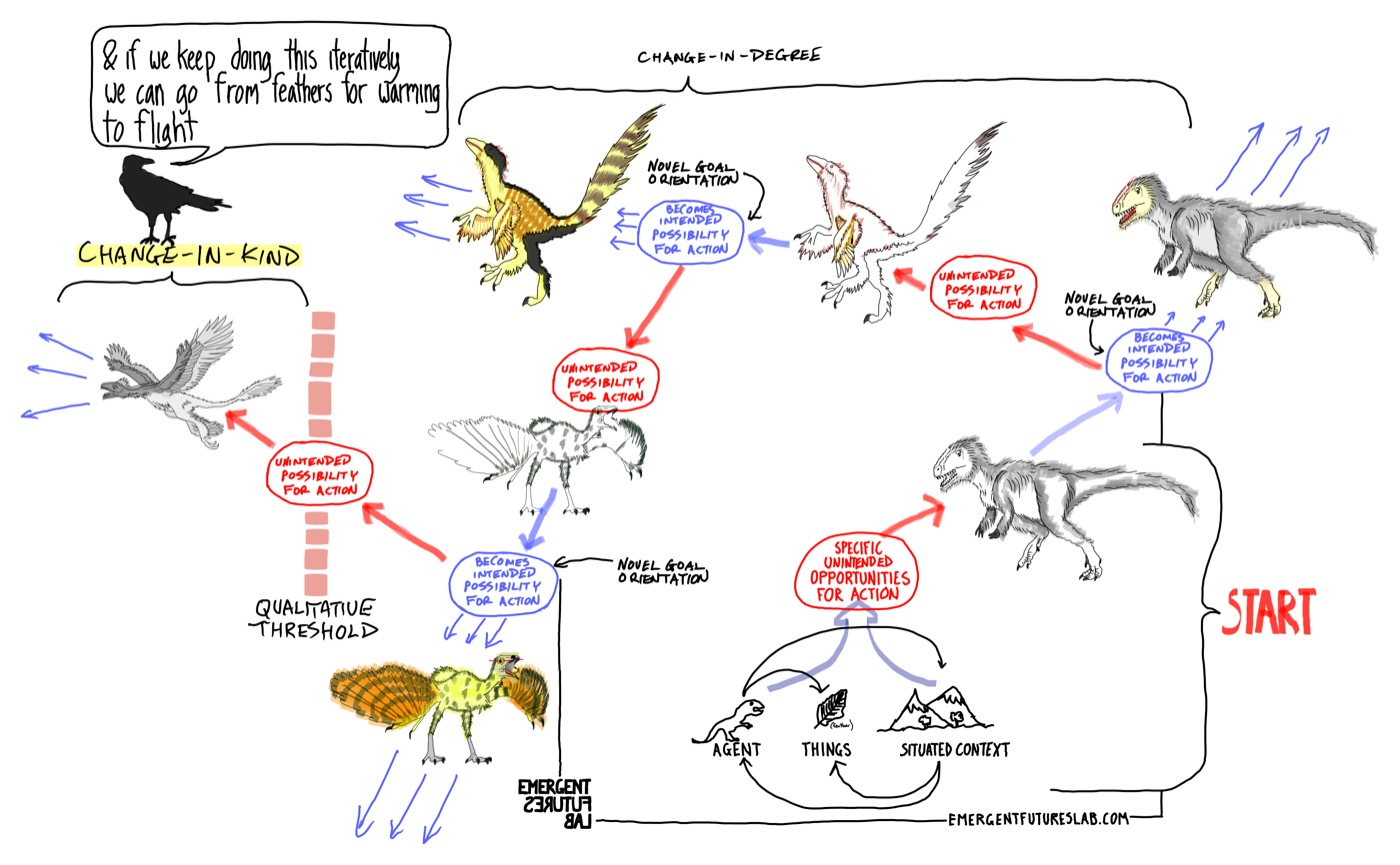 & if we keep doing this iteratively
we can go from feathers for warming
to flight
CHANGE-IN-DEGREE
CHANGE-IN-KIND
NOVEL GOAL
ORIENTATION
BECOMES
INTENDED
POSSIBILITY
FOR ACTION
UNINTENDED
POSSIBILITY
FOR ACTION
NOVEL GOAL
ORIENTATION
BECOMES
INTENDED
POSSIBILITY
FOR ACTION
UNINTENDED
POSSIBILITY
FOR ACTION
UNINTENDED
POSSIBILITY
FOR ACTION
QUALITATIVE
THRESHOLD
BECOMES
INTENDED
POSSIBILITY
FOR ACTION
NOVEL GOAL
ORIENTATION
SPECIFIC
UNINTENDED
OPPORTUNITIES
FOR ACTION
START
(feather)
AGENT
THINGS
SITUATED CONTEXT
EMERGENT
FUTURES
LAB
EMERGENTFUTURESLAB.COM